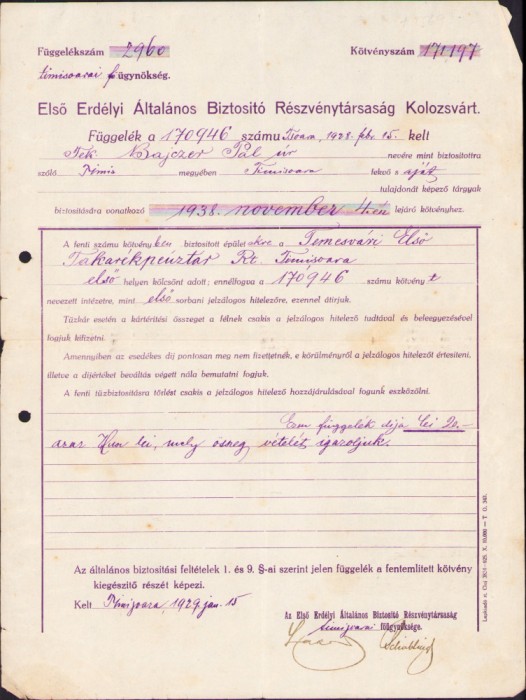 Függelékszám 2960 Kötvényszám 171.197
timisoarai főügynökség.
Első Erdélyi Általános Biztositó Részvénytársaság Kolozsvárt.
Függelék a 170946 számu Tsoara, 1928. febr. 15. kelt
Tek Bajczer Pál úr nevére mint biztosittotta
szóló Timis megyében Timisoara fekvő s saját
tulajdonát képező tárgyak
biztositására vonatkozó 1938. november 4.-én lejáró kötvényhez.
A fenti számu kötvényben biztosított épületekre a Temesvári Első
Takarékpénztár Rt. Timisoara
első helyen kölcsönt adott; ennélfogva a 170946 számu kötvényt
nevezett intézetre, mint első sorbani jelzálogos hitelezőre, ezennel átirjuk.
Tűzkár esetén a kártéritési összeget a félnek csakis a jelzálogos hitelező tudtával és beleegyezésével
fogjuk kifizetni.
Amennyiben az esedékes dij pontosan meg nem fizettetnék, e körülményről a jelzálogos hitelezőt értesiteni,
illetve a dijértéket beváltás végett nála bemutatni fogjuk.
A fenti tüzbiztositásra törlést csakis a jelzálogos hitelező hozzájárulásával fogunk eszközölni.
Ezen függelék díja Lei 20.-
azaz Husz lei, mely összeg vételét igazoljuk.
Az általános biztositási feltételek 1. és 9. §-ai szerint jelen függelék a fentemlitett kötvény
kiegészitő részét képezi.
Kelt Timisoara 1929. jan. 15
Az Első Erdélyi Általános Biztositó Részvénytársaság
timisoarai főügynöksége.